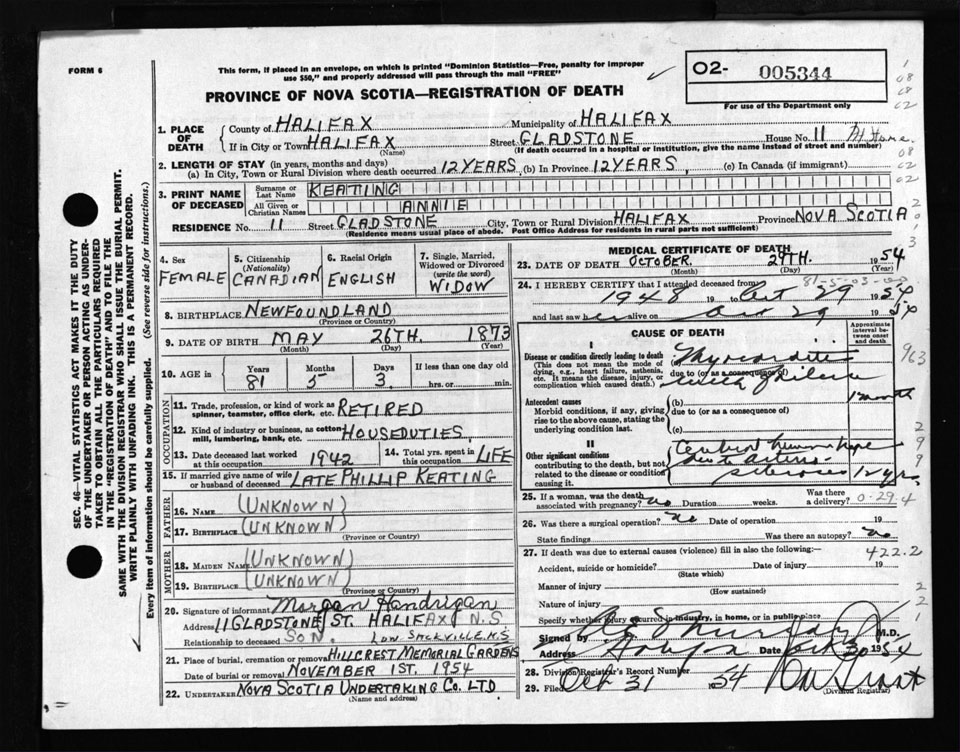 FORM 6
This form, if placed in an envelope, on which is printed "Dominion Statistics—Free, penalty for improper
use $50," and properly addressed will pass through the mail "FREE"
PROVINCE OF NOVA SCOTIA—REGISTRATION OF DEATH
02- 005344
For use of the Department only
1. PLACE OF DEATH
County of HALIFAX Municipality of HALIFAX
If in City or Town HALIFAX Street GLADSTONE House No. 11
(Name) (If death occurred in a hospital or institution, give the name instead of street and number)
2. LENGTH OF STAY (in years, months and days)
(a) In City, Town or Rural Division where death occurred 12 YEARS (b) In Province 12 YEARS (c) In Canada (if immigrant)
3. PRINT NAME OF DECEASED
Surname or Last Name KEATING
All Given or Christian Names ANNIE
RESIDENCE No. 11 Street GLADSTONE City, Town or Rural Division HALIFAX Province NOVA SCOTIA
(Residence means usual place of abode. Post Office Address for residents in rural parts not sufficient)
4. Sex FEMALE
5. Citizenship (Nationality) CANADIAN
6. Racial Origin ENGLISH
7. Single, Married, Widowed or Divorced (write the word) WIDOW
8. BIRTHPLACE NEWFOUNDLAND
(Province or Country)
9. DATE OF BIRTH MAY 26TH. 1873
(Month) (Day) (Year)
10. AGE in Years 81 Months 5 Days 3 If less than one day hrs. or min.
OCCUPATION
11. Trade, profession, or kind of work as spinner, teamster, office clerk, etc. RETIRED
12. Kind of industry or business, as cotton mill, lumbering, bank, etc. HOUSEDUTIES.
13. Date deceased last worked at this occupation 1942
14. Total yrs. spent in this occupation LIFE
15. If married give name of wife or husband of deceased LATE PHILLIP KEATING
FATHER
16. Name (UNKNOWN)
17. BIRTHPLACE (UNKNOWN)
(Province or Country)
MOTHER
18. MAIDEN NAME (UNKNOWN)
19. BIRTHPLACE (UNKNOWN)
(Province or Country)
20. Signature of informant Morgan Handrigan
Address 11 GLADSTONE ST. HALIFAX N.S.
Relationship to deceased SON. LOW. SACKVILLE N.S
21. Place of burial, cremation or removal HILLCREST MEMORIAL GARDENS
Date of burial or removal NOVEMBER 1ST. 1954
22. UNDERTAKER NOVA SCOTIA UNDERTAKING CO. LTD
(Name and address)
MEDICAL CERTIFICATE OF DEATH
23. DATE OF DEATH OCTOBER. 29TH. 1954
(Month) (Day) (Year)
24. I HEREBY CERTIFY that I attended deceased from
1948 19 to Oct 29 1954
and last saw her alive on Oct 29 1954
CAUSE OF DEATH
Approximate interval between onset and death
I
Disease or condition directly leading to death (a) Myocarditis
(This does not mean the mode of dying, e.g., heart failure, asthenia, etc. It means the disease, injury, or complication which caused death.)
due to (or as a consequence of) with failure 1 month
Antecedent causes
Morbid conditions, if any, giving rise to the above cause, stating the underlying condition last.
(b)
due to (or as a consequence of)
(c)
II
Other significant conditions
contributing to the death, but not related to the disease or condition causing it.
sclerosis 12 yrs.
25. If a woman, was the death associated with pregnancy? no Duration weeks. Was there a delivery?
26. Was there a surgical operation? no Date of operation 19
State findings Was there an autopsy? no
27. If death was due to external causes (violence) fill in also the following:— 422.2
Accident, suicide or homicide? Date of injury 19
(State which)
Manner of injury
(How sustained)
Nature of injury
Specify whether injury occurred in industry, in home, or in public place
Signed by M.D.
Address Date Oct 30 1954
28. Division Registrar's Record Number
29. Filed Oct 31 1954
(Division Registrar)
SEC. 46—VITAL STATISTICS ACT MAKES IT THE DUTY
OF THE UNDERTAKER OR PERSON ACTING AS UNDER-
TAKER TO OBTAIN ALL THE PARTICULARS REQUIRED
IN THE "REGISTRATION OF DEATH" AND TO FILE THE
SAME WITH THE DIVISION REGISTRAR WHO SHALL ISSUE THE BURIAL PERMIT.
WRITE PLAINLY WITH UNFADING INK. THIS IS A PERMANENT RECORD.
Every item of information should be carefully supplied. (See reverse side for instructions.)